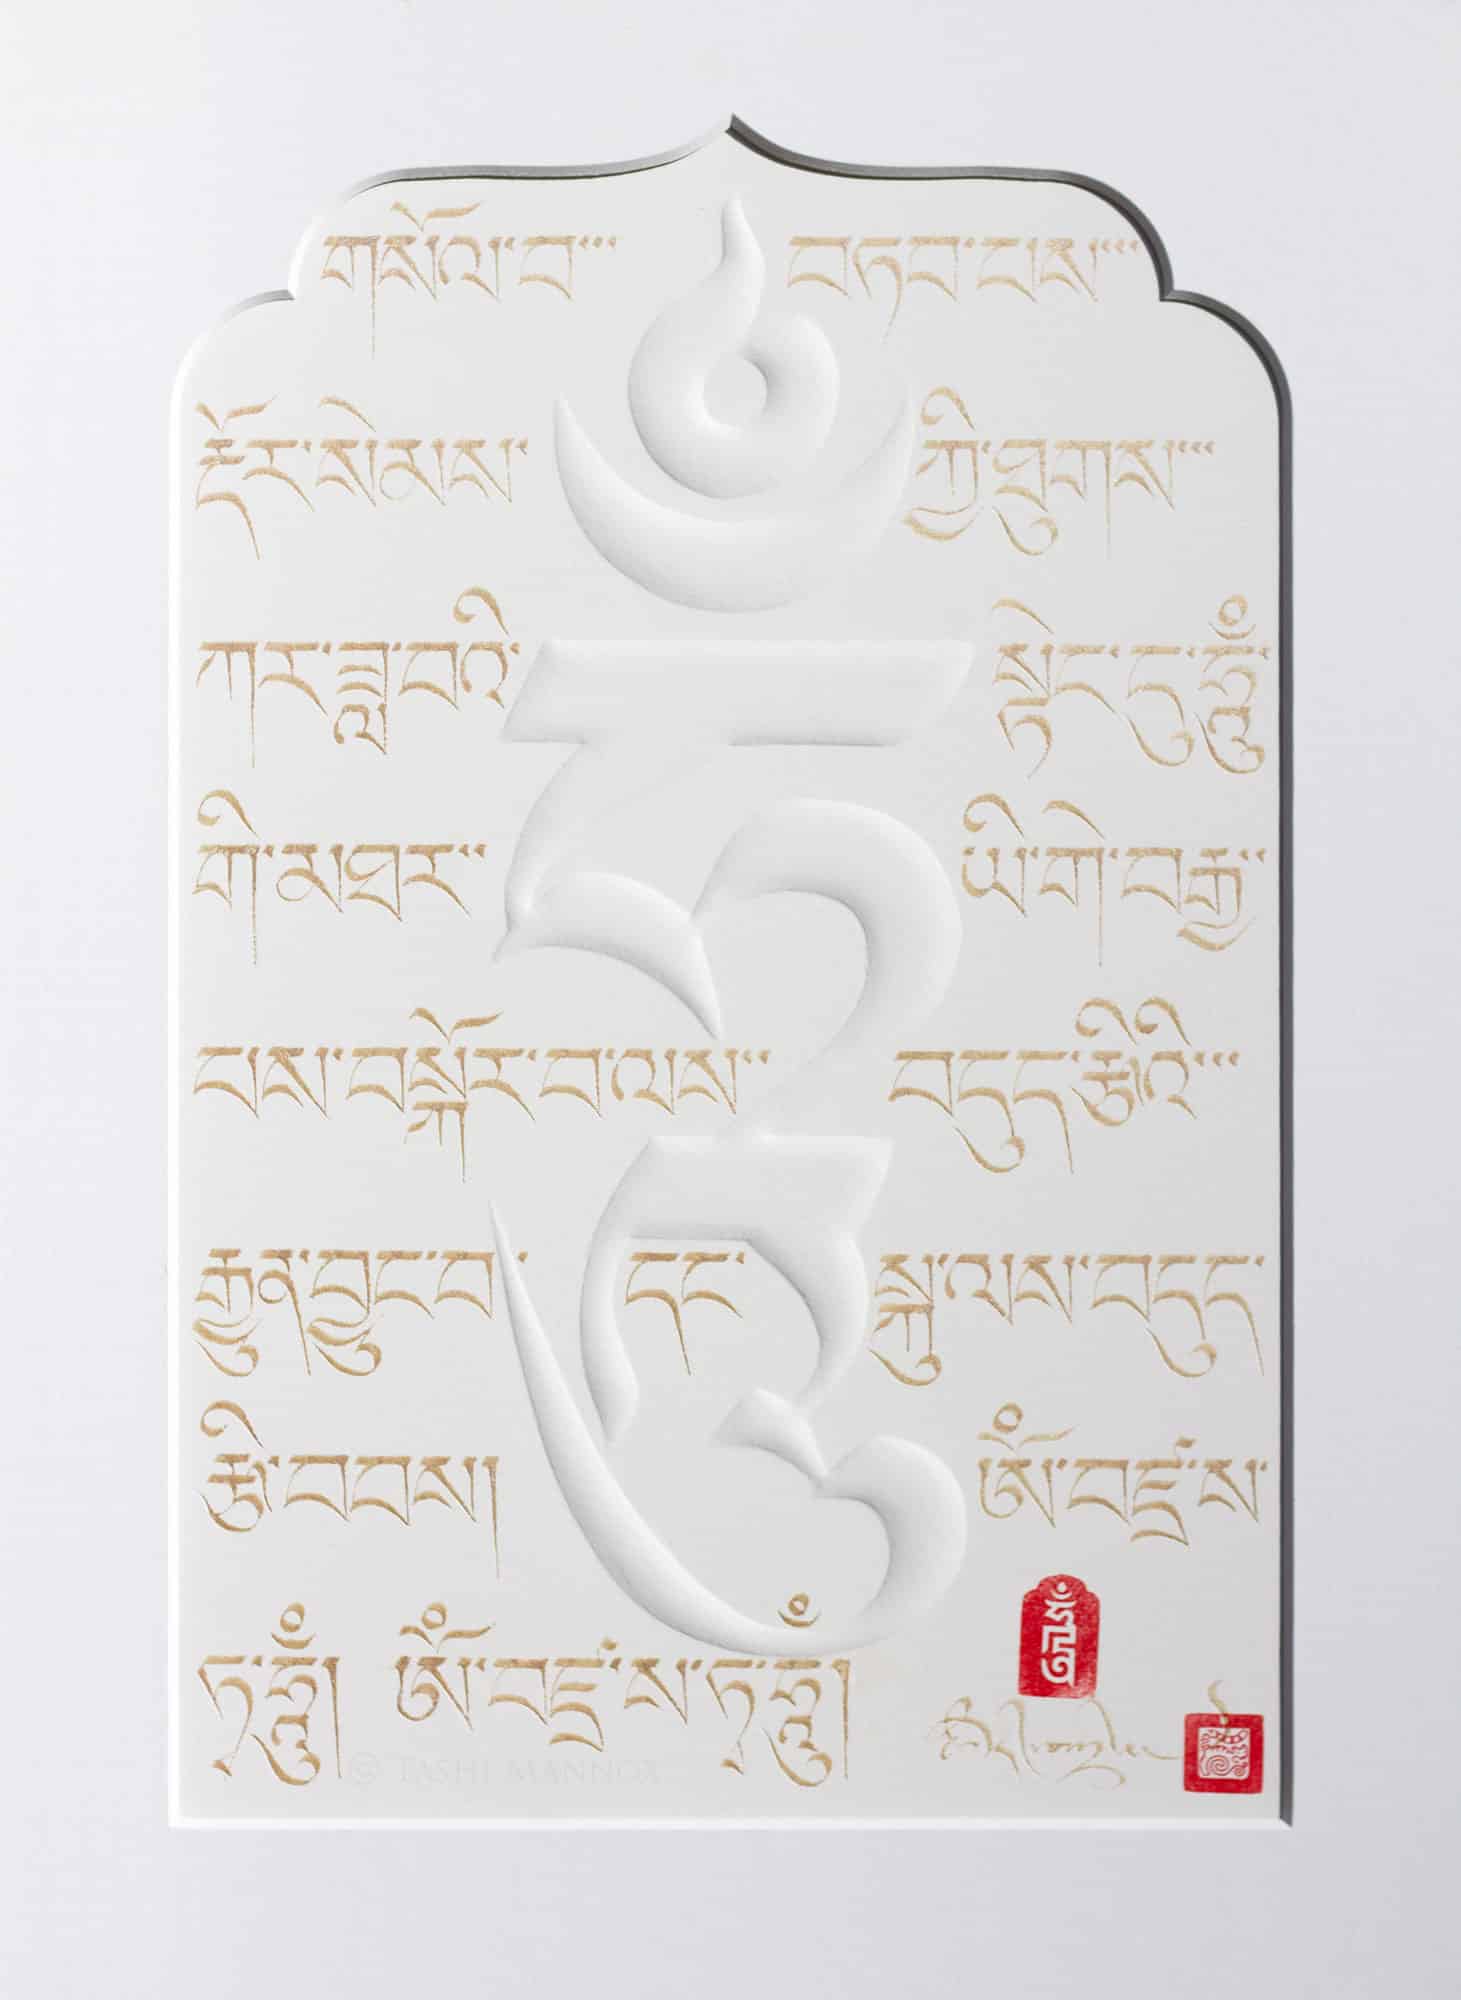 གསོལ་བ་་་ བཏབ་པས་་་
རྡོར་སེམས་་ ཀྱི་ཐུགས་་་
ཀར་ཟླ་བའི་ སྟེང་དུ་ཧཱུྃ་
གི་མཐར་་ ཡི་གེ་བརྒྱ་་
པས་བསྐོར་བ་ལས་་ བདུད་རྩིའི་་་
རྒྱུན་བྱུང་བ་ དང་ སྐུ་ལས་བདུད་
རྩི་བབས། ཨོཾ་བཛྲ་ས་
ཏ་ཧཱུྃ། ཨོཾ་བཛྲ་ས་ཏ་ཧཱུྃ།
ཧཱུྃ
© TASHI MANNOX